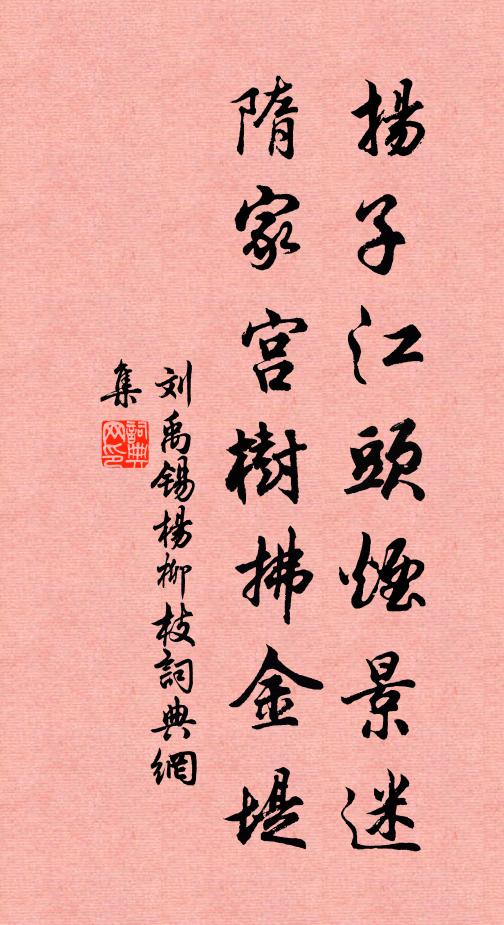 揚子江頭煙景迷
隋家宮樹拂金堤
刘禹锡楊柳枝詞典網
集
詞典网印